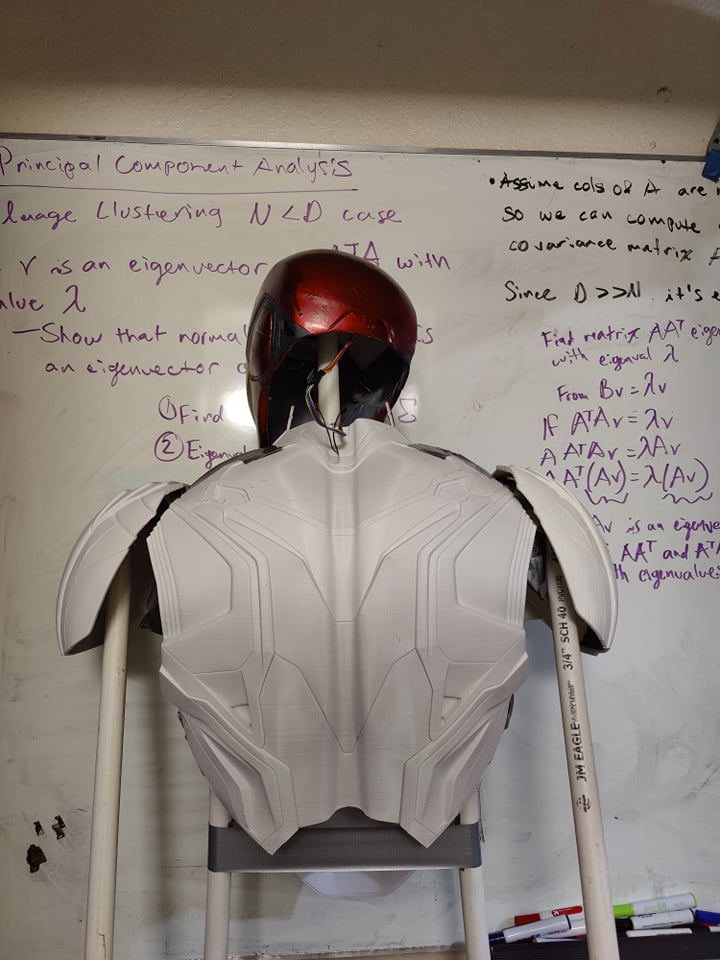 Principal Component Analysis
Image Clustering N<D case
v is an eigenvector ATA with
value λ
- Show that normal is
an eigenvector
① Find
② Eigenv
• Assume cols of A are
so we can compute
covariance matrix
Since D>>N it's
Find matrix AAᵀ eigen
with eigenval λ
From Bv = λv
If AᵀAv = λv
A AᵀAv = λAv
AAᵀ(Av) = λ(Av)
Av is an eigenve
AAᵀ and AᵀA
th eigenvalues
JM EAGLE 3/4" SCH 40